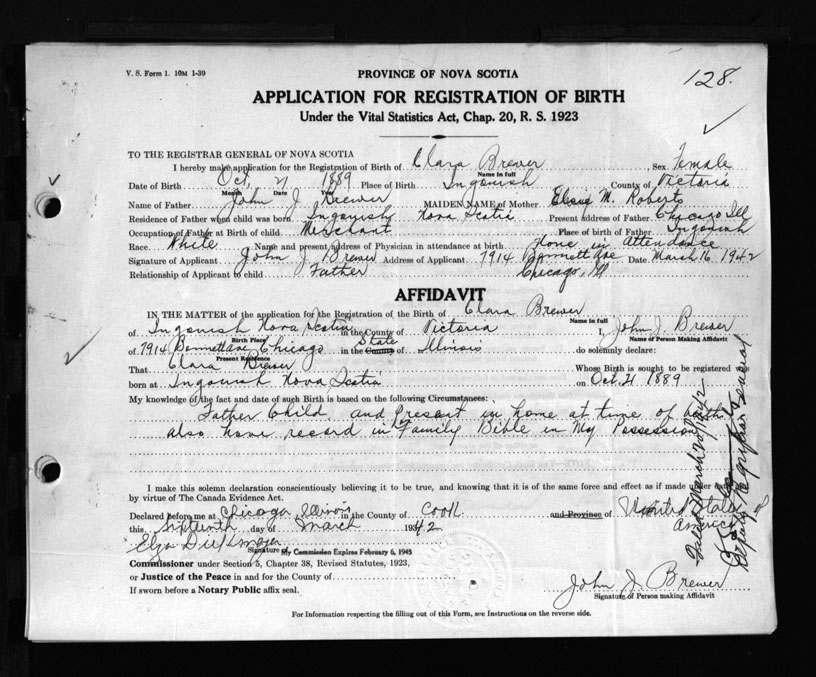 V. S. Form 1. 10M 1-39
PROVINCE OF NOVA SCOTIA
128.
APPLICATION FOR REGISTRATION OF BIRTH
Under the Vital Statistics Act, Chap. 20, R. S. 1923
TO THE REGISTRAR GENERAL OF NOVA SCOTIA
I hereby make application for the Registration of Birth of Clara Brewer Sex Female
Name in full
Date of Birth Oct, 21 1889 Place of Birth Ingonish County of Victoria
Month Date Year
Name of Father John J. Brewer MAIDEN NAME of Mother M. Roberts
Residence of Father when child was born. Ingonish Nova Scotia Present address of Father Chicago Ill
Occupation of Father at Birth of child Merchant Place of birth of Father Ingonish
Race. White Name and present address of Physician in attendance at birth None in Attendance
Signature of Applicant John J. Brewer Address of Applicant 7914 Bennett Ave Date March 16 1942
Relationship of Applicant to child Father Chicago, Ill
AFFIDAVIT
IN THE MATTER of the application for the Registration of the Birth of Clara Brewer
Name in full
of Ingonish Nova Scotia in the County of Victoria I, John J. Brewer
Birth Place Name of Person Making Affidavit
of 7914 Bennett ave Chicago in the County State of Illinois do solemnly declare:
Present Residence
That Clara Brewer Whose Birth is sought to be registered
born at Ingonish Nova Scotia on Oct. 21 1889
My knowledge of the fact and date of such Birth is based on the following Circumstances:
Father Child and Present in home at time of birth
also have record in Family Bible in My Possession
I make this solemn declaration conscientiously believing it to be true, and knowing that it is of the same force and effect as if made under oath
by virtue of The Canada Evidence Act.
Declared before me at Chicago Illinois in the County of Cook and Province of United States
this sixteenth day of March 1942 America
Signature of My Commission Expires February 6, 1945
Commissioner under Section 5, Chapter 38, Revised Statutes, 1923,
or Justice of the Peace in and for the County of
If sworn before a Notary Public affix seal.
John J. Brewer
Signature of Person making Affidavit
For Information respecting the filling out of this Form, see Instructions on the reverse side.
Filed March 20/1942
Deputy Registrar General